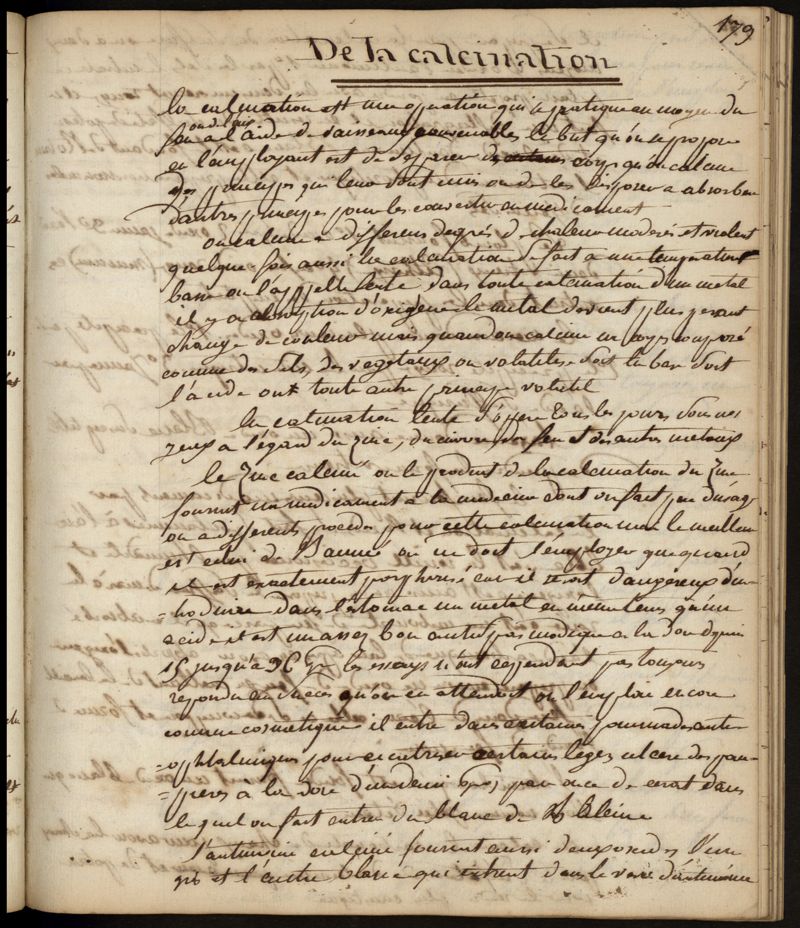 179
De la calcination
la calcination est une opération qui se pratique au moyen du
feu ou à l'aide de vaisseaux convenables le but qu'on se propose
en l'employant est de séparer des corps qu'on calcine
des principes qui leur sont unis ou de les disposer a absorber
d'autres principes pour les convertir en medicament
on calcine a differens degrés de chaleur moderés et violent
quelque fois aussi la calcination se fait a une temperature
basse on l'appelle lente dans toute calcination d'un metal
il y a absorption d'oxigene le metal devient plus pesant
change de couleur mais quand on calcine un corps composé
comme des sels, des vegetaux on volatilise soit la base soit
l'acide ou toute autre principe volatil
la calcination lente s'opere tous les jours sous nos
yeux a l'égard du zinc, du cuivre, du fer et des autres metaux
le Zinc calciné ou le produit de la calcination du Zinc
fournit un medicament a la medecine dont on fait peu d'usage
on a differents procedés pour cette calcination mais le meilleur
est celui de Baumé on ne doit l'employer que quand
il est exactement porphirisé car il seroit dangereux d'in-
=troduire dans l'estomac un metal en même tems qu'un
acide il est un assez bon antispasmodique a la dose depuis
15 jusqu'a 36 gr les essays n'ont cependant pas toujours
repondu au succes qu'on en attendoit on l'emploie encore
comme cosmetique il entre dans certaines pommades anti-
=ophtalmiques pour cicatriser certains legers ulceres des pau-
=pieres à la dose d'un demi gros par once de cerat dans
lequel on fait entrer du blanc de Baleine
l'antimoine calciné fournit aussi deux oxides l'un
gris et l'autre blanc qui entrent dans le verre d'antimoine